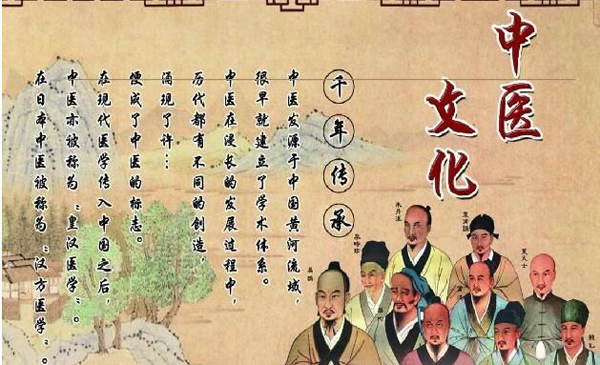 中医
文化
千年传承
中医发源于中国黄河流域,
很早就建立了学术体系。
中医在漫长的发展过程中,
历代都有不同的创造,
涌现了许…
便成了中医的标志。
在现代医学传入中国之后,
中医亦被称为“皇汉医学”。
在日本中医被称为“汉方医学”。
朱丹溪
李時珍